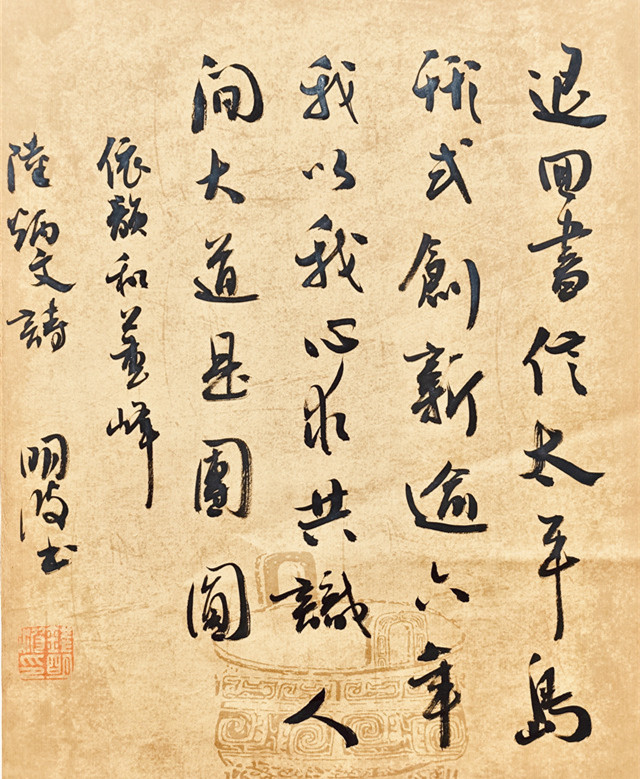 退回書信太平島
式創新逾六年
我以我心求共識人
間大道是團圓
依韻和峰
陸炳文詩 明書